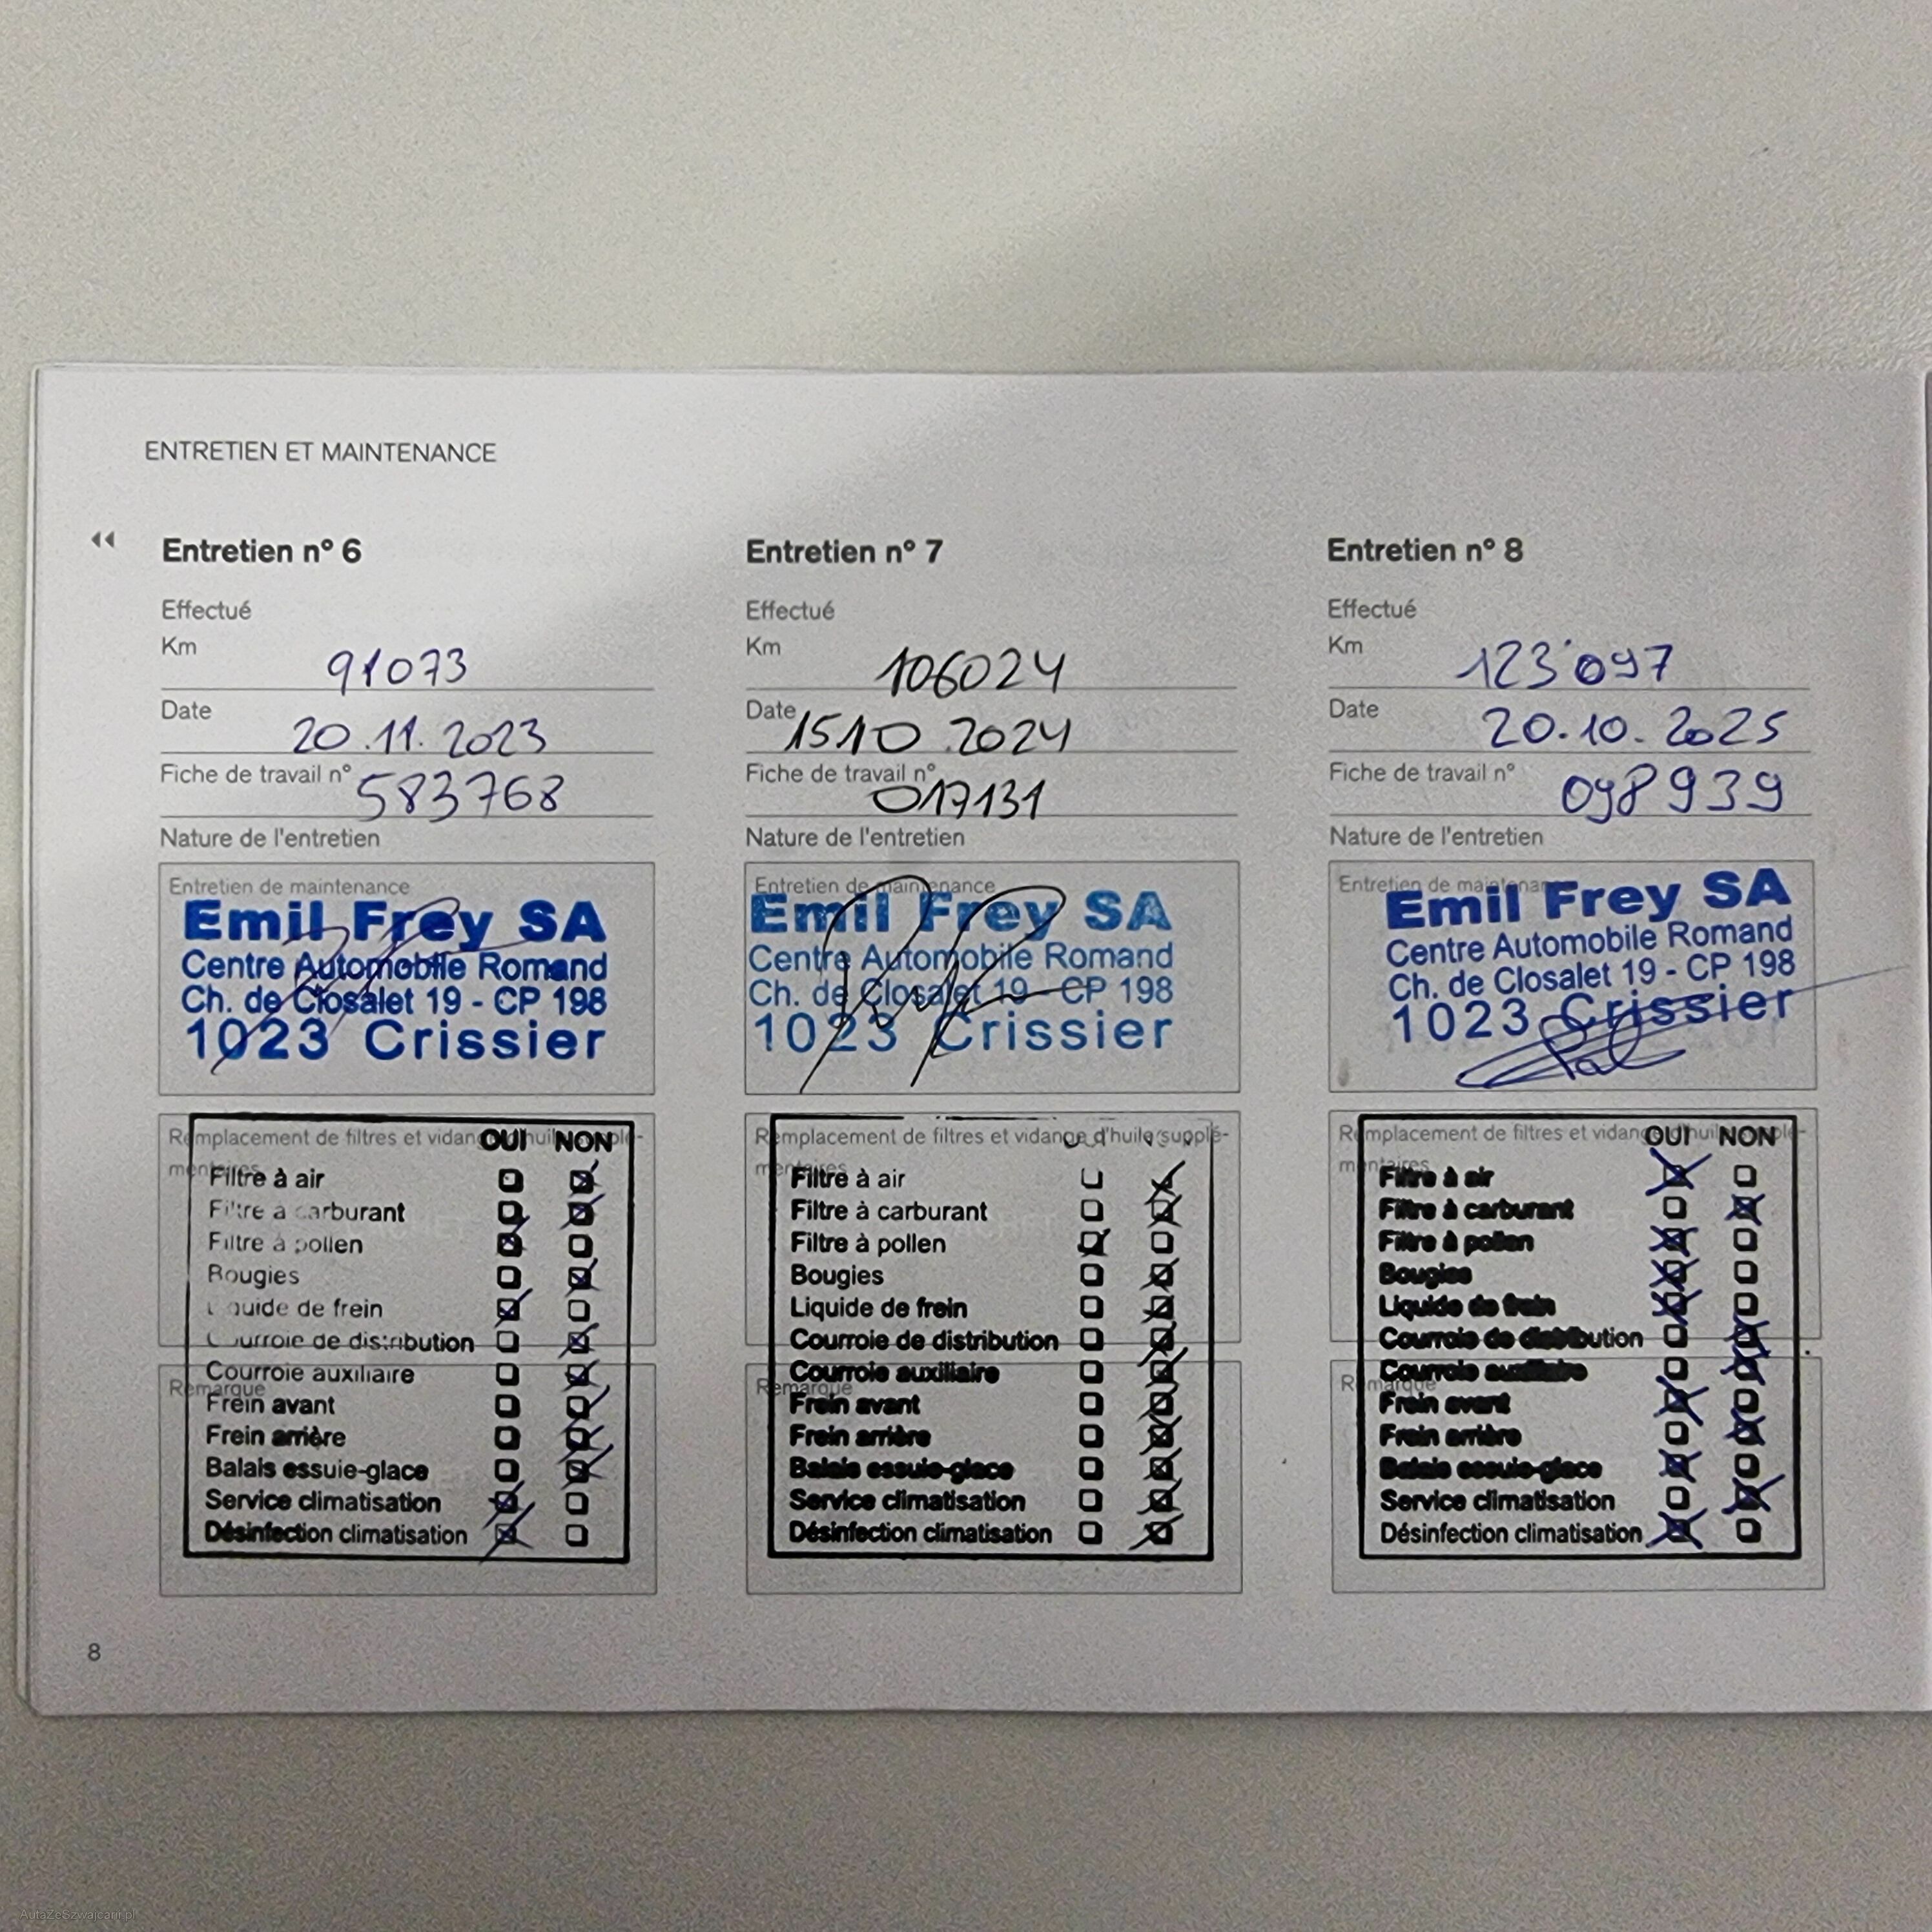 ENTRETIEN ET MAINTENANCE
Entretien n° 6
Effectué
Km 91073
Date 20.11.2023
Fiche de travail n° 583768
Nature de l'entretien
Entretien de maintenance
Emil Frey SA
Centre Automobile Romand
Ch. de Closalet 19 - CP 198
1023 Crissier
Remplacement de filtres et vidange d'huile supplé-
mentaires
OUI NON
Filtre à air
Filtre à carburant
Filtre à pollen
Bougies
Liquide de frein
Courroie de distribution
Courroie auxiliaire
Remarque
Frein avant
Frein arrière
Balais essuie-glace
Service climatisation
Désinfection climatisation
Entretien n° 7
Effectué
Km 106024
Date 15 10 .2024
Fiche de travail n° 017131
Nature de l'entretien
Entretien de maintenance
Emil Frey SA
Centre Automobile Romand
Ch. de Closalet 19 - CP 198
1023 Crissier
Remplacement de filtres et vidange d'huile supplé-
mentaires
Filtre à air
Filtre à carburant
Filtre à pollen
Bougies
Liquide de frein
Courroie de distribution
Courroie auxiliaire
Remarque
Frein avant
Frein arrière
Balais essuie-glace
Service climatisation
Désinfection climatisation
Entretien n° 8
Effectué
Km 123'097
Date 20.10.2025
Fiche de travail n° 098939
Nature de l'entretien
Entretien de maintenance
Emil Frey SA
Centre Automobile Romand
Ch. de Closalet 19 - CP 198
1023 Crissier
Remplacement de filtres et vidange d'huile supplé-
mentaires
OUI NON
Filtre à air
Filtre à carburant
Filtre à pollen
Bougies
Liquide de frein
Courroie de distribution
Courroie auxiliaire
Remarque
Frein avant
Frein arrière
Balais essuie-glace
Service climatisation
Désinfection climatisation
8
AutaZeSzwajcarii.pl